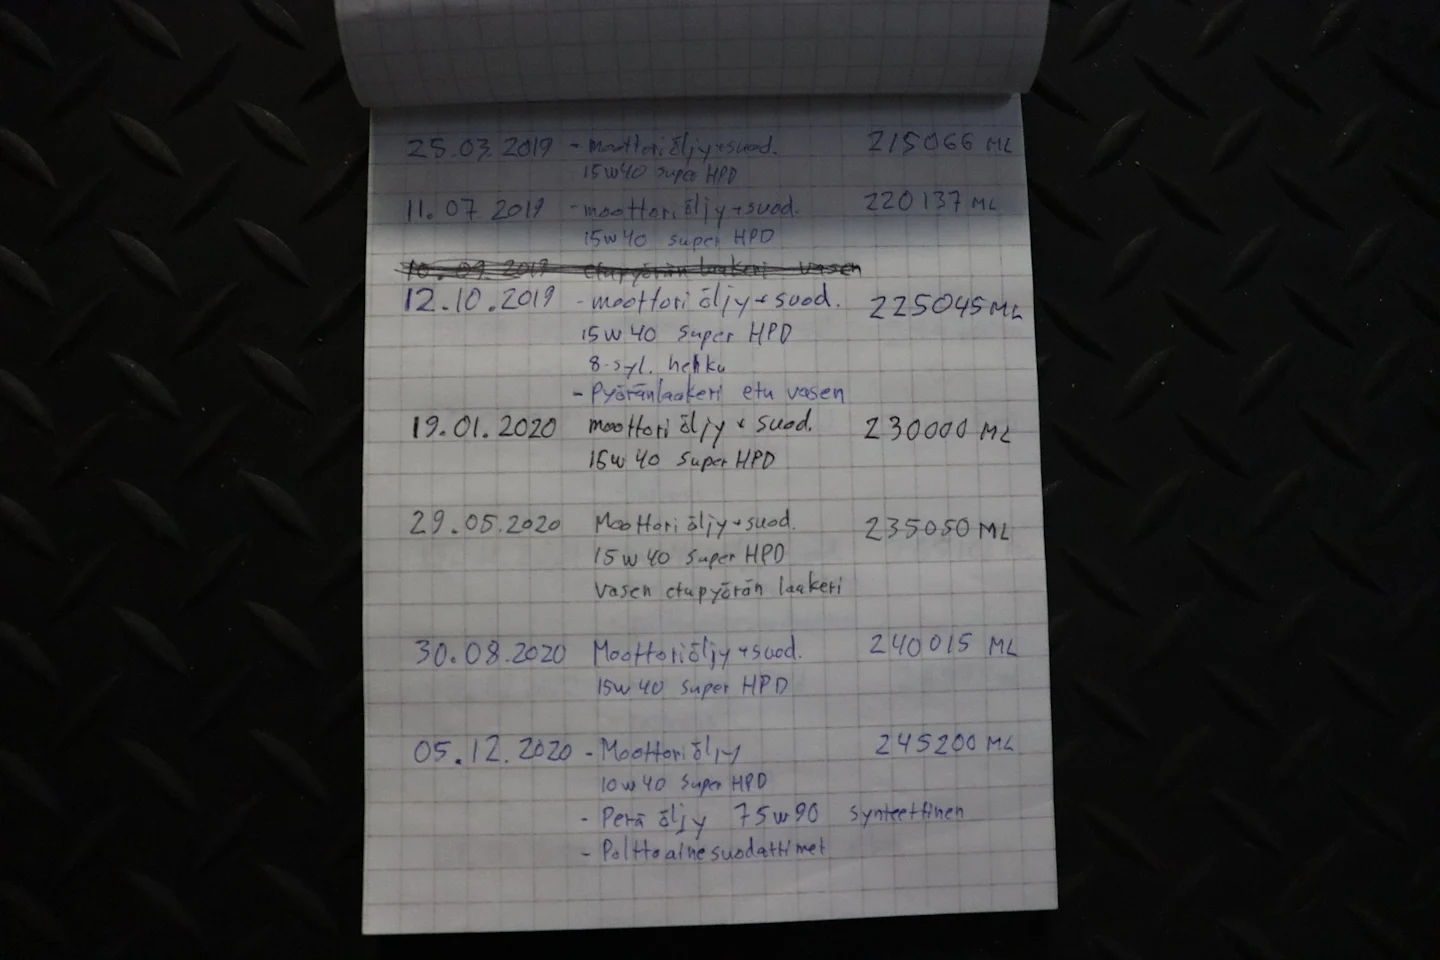 25.03.2019 - moottoriöljy+suod. 215066 ML
15w40 super HPD
11.07 2019 - moottoriöljy+suod. 220137 ML
15w40 super HPD
10.09.2019 etupyörän laakeri vasen
12.10.2019 - moottoriöljy+suod. 225045 ML
15w40 super HPD
8-syl. hehku
- Pyöränlaakeri etu vasen
19.01.2020 moottoriöljy+suod. 230000 ML
15w40 super HPD
29.05.2020 Moottoriöljy+suod. 235050 ML
15w40 super HPD
vasen etupyörän laakeri
30.08.2020 Moottoriöljy+suod. 240015 ML
15w40 super HPD
05.12.2020 - Moottoriöljy 245200 ML
10w40 super HPD
- Perä öljy 75w90 synteettinen
- Polttoainesuodattimet